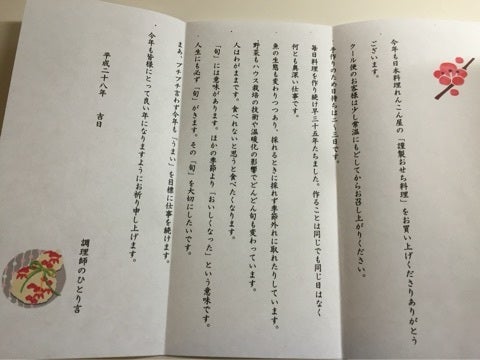 今年も日本料理れんこん屋の「謹製おせち料理」をお買い上げくださりありがとう
ございます。
クール便のお客様は少し常温にもどしてからお召し上がりください。
手作りのため日持ちは二〜三日です。
毎日料理を作り続け早三十五年たちました。作ることは同じでも同じ日はなく
何とも奥深い仕事です。
魚の生態も変わりつつあり、採れるときに採れず季節外れに取れたりしています。
野菜もハウス栽培の技術や温暖化の影響でどんどん旬も変わっています。
人はわがままです。食べれないと思うと食べたくなります。
「旬」には意味があります。ほかの季節より「おいしくなった」という意味です。
人生にも必ず「旬」がきます。その「旬」を大切にしたいです。
まあ、ブチブチ言わず今年も「うまい」を目標に仕事を続けます。
今年も皆様にとって良い年になりますようにお祈り申し上げます。
平成二十八年　吉日
調理師のひとり言